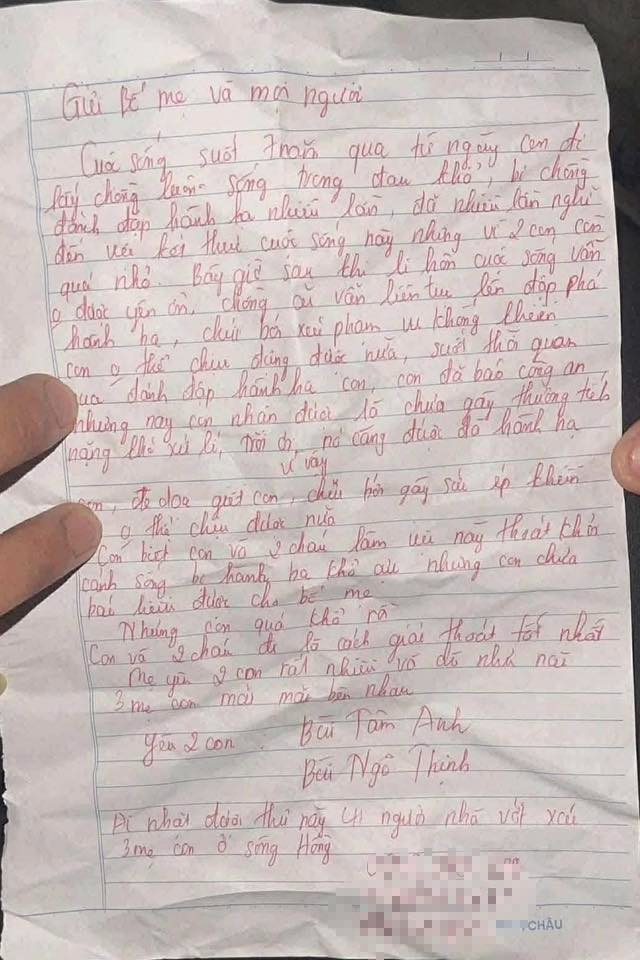 Gửi Bố mẹ và mọi người
Cuộc sống suốt 7 năm qua từ ngày con đi
lấy chồng luôn sống trong đau khổ, bị chồng
đánh đập hành hạ nhiều lần, đã nhiều lần nghĩ
đến việc kết thúc cuộc sống này nhưng vì 2 con còn
quá nhỏ. Bây giờ sau khi li hôn cuộc sống vẫn
o được yên ổn, chồng cũ vẫn liên tục lên đập phá
hành hạ, chửi bới xúc phạm khiến
con o thể chịu đựng được nữa, suốt thời gian
qua đánh đập hành hạ con, con đã báo công an
nhưng nay con nhận được là chưa gây thương tích
nặng khó xử lí, trời ơi, nó càng được đà hành hạ
vì vậy
con, đe doạ giết con, chửi bới gây sức ép khiến
o thể chịu được nữa
Con biết con và 2 cháu làm việc này thoát khỏi
cảnh sống bị hành hạ khổ ải nhưng con chưa
báo hiếu được cho bố mẹ
Nhưng con quá khổ rồi
Con và 2 cháu đi là cách giải thoát tốt nhất
Mẹ yêu 2 con rất nhiều và
3 mẹ con mãi mãi bên nhau
Yêu 2 con: Bùi Tâm Anh
Bùi Ngô Thịnh
Ai nhặt được thư này người nhà vớt xác
3 mẹ con ở sông Hồng
CHÂU